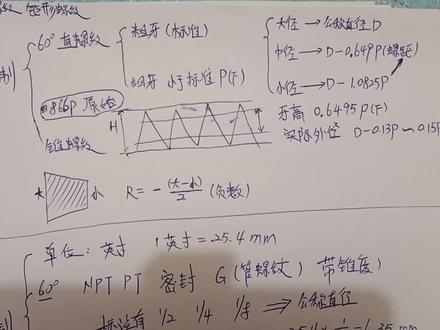 三角形螺纹
60° 直螺纹
粗牙 (标准)
细牙 小于标准 P(下)
大径 → 公称直径 D
中径 → D-0.649P (螺距)
小径 → D-1.0825P
牙高 0.6495P(下)
实际外径 D-0.13P ~ 0.15P
制
0.866P 原始
H
锥螺纹
大 小 R = - (大-小)/2 (负数)
单位: 英寸 1英寸 = 25.4 mm
60° NPT PT 密封 G (管螺纹) 带锥度
制
1/2 1/4 1/8 ⇒ 公称直径